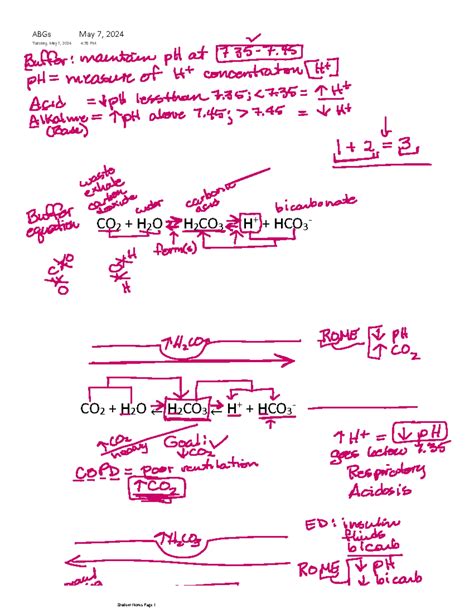 ABGs May 7, 2024
Tuesday, May 7, 2024 4:35 PM
Buffer: maintain pH at 7.35-7.45
pH = measure of H+ concentration [H+]
Acid = ↓pH less than 7.35; < 7.35 = ↑ H+
Alkaline = ↑pH above 7.45; > 7.45 = ↓ H+
(Base)
1 + 2 = 3
waste
exhale
carbon
dioxide
water
carbonic
acid
bicarbonate
Buffer
equation
CO2 + H2O ⇌ H2CO3 ⇌ H+ + HCO3-
form(s)
C O
O
O H
H
↑H2CO3
ROME ↓ pH
↑ CO2
CO2 + H2O ⇌ H2CO3 ⇌ H+ + HCO3-
↑CO2
heavy
Goal: ✓
↓CO2
COPD = poor ventilation
↑CO2
↑ H+ = ↓ pH
goes below 7.35
Respiratory
Acidosis
↑H2CO3
ED: insulin
fluids
bicarb
ROME ↓ pH
↓ bicarb